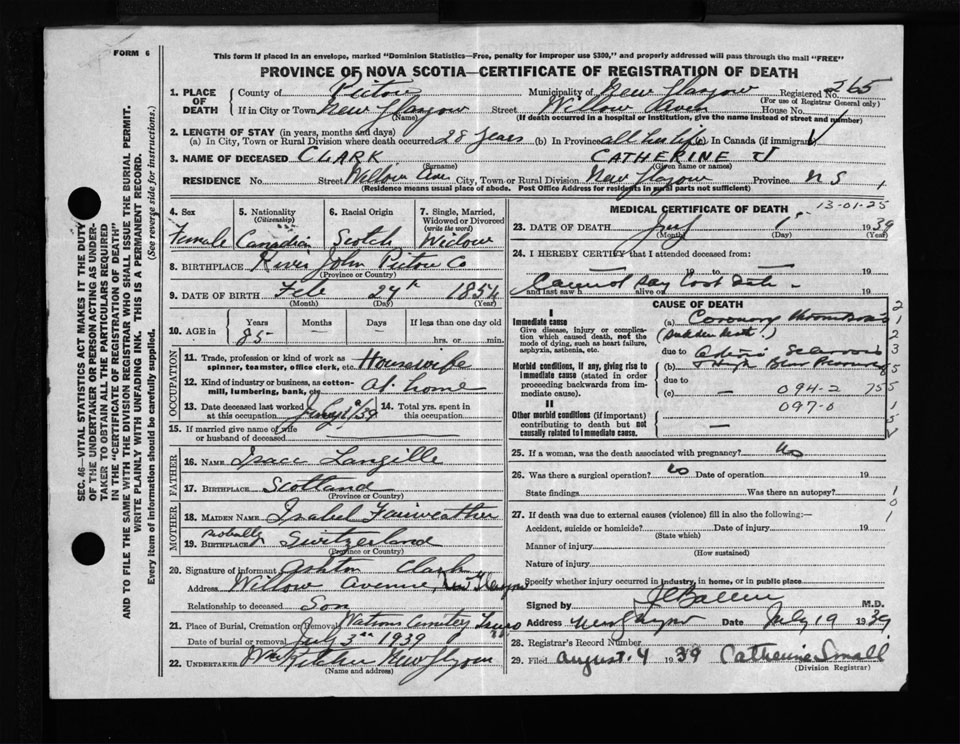 FORM 6
This form if placed in an envelope, marked "Dominion Statistics—Free, penalty for improper use $300," and properly addressed will pass through the mail "FREE"
PROVINCE OF NOVA SCOTIA—CERTIFICATE OF REGISTRATION OF DEATH
1. PLACE OF DEATH County of Pictou Municipality of New Glasgow Registered No. 265
(For use of Registrar General only)
If in City or Town New Glasgow Street Willow Avenue House No.
(Name) (If death occurred in a hospital or institution, give the name instead of street and number)
2. LENGTH OF STAY (in years, months and days)
(a) In City, Town or Rural Division where death occurred 28 years (b) In Province all her life (c) In Canada (if immigrant)
3. NAME OF DECEASED CLARK CATHERINE J
(Surname) (Given name or names)
RESIDENCE No. Street Willow Ave City, Town or Rural Division New Glasgow Province N S
(Residence means usual place of abode. Post Office Address for residents in rural parts not sufficient)
4. Sex 5. Nationality (Citizenship) 6. Racial Origin 7. Single, Married, Widowed or Divorced (write the word)
Female Canadian Scotch Widow
8. BIRTHPLACE River John Pictou Co
(Province or Country)
9. DATE OF BIRTH Feb 24th 1854
(Month) (Day) (Year)
10. AGE in Years Months Days If less than one day old
85 hrs. or min.
OCCUPATION
11. Trade, profession or kind of work as spinner, teamster, office clerk, etc. Housewife
12. Kind of industry or business, as cotton-mill, lumbering, bank, etc. At home
13. Date deceased last worked at this occupation 14. Total yrs. spent in this occupation
15. If married give name of wife or husband of deceased
FATHER
16. NAME Isacc Langille
17. BIRTHPLACE Scotland
(Province or Country)
MOTHER
18. MAIDEN NAME Isabel Fairweather
19. BIRTHPLACE probably Switzerland
(Province or Country)
20. Signature of informant Ashton Clark
Address Willow Avenue, New Glasgow
Relationship to deceased Son
21. Place of Burial, Cremation or Removal Watsons Cemetery Truro
Date of burial or removal July 3rd 1939
22. UNDERTAKER New Glasgow
(Name and address)
MEDICAL CERTIFICATE OF DEATH 13-01-25
23. DATE OF DEATH July 1 1939
(Month) (Day) (Year)
24. I HEREBY CERTIFY that I attended deceased from:
19 to 19
Cannot say last date -
and last saw h alive on 19
CAUSE OF DEATH
I
Immediate cause (a) Coronary Thrombosis
Give disease, injury or complication which caused death, not the mode of dying, such as heart failure, asphyxia, asthenia, etc.
(sudden death)
due to
Morbid conditions, if any, giving rise to immediate cause (stated in order proceeding backwards from immediate cause)
(b) + High
due to
(c) 094-2 755
II 097-0
Other morbid conditions (if important) contributing to death but not causally related to immediate cause.
2
1
2
3
5
5
1
5
25. If a woman, was the death associated with pregnancy? No
26. Was there a surgical operation? No Date of operation 19
State findings Was there an autopsy?
1
0
1
27. If death was due to external causes (violence) fill in also the following:—
Accident, suicide or homicide? Date of injury 19
(State which)
Manner of injury
(How sustained)
Nature of injury
Specify whether injury occurred in industry, in home, or in public place
Signed by M.D.
Address New Glasgow Date July 19 1939
28. Registrar's Record Number
29. Filed August 4 1939 Catherine Small
(Division Registrar)
SEC. 46—VITAL STATISTICS ACT MAKES IT THE DUTY
OF THE UNDERTAKER OR PERSON ACTING AS UNDERTAKER TO OBTAIN ALL THE PARTICULARS REQUIRED
IN THE "CERTIFICATE OF REGISTRATION OF DEATH"
AND TO FILE THE SAME WITH THE DIVISION REGISTRAR WHO SHALL ISSUE THE BURIAL PERMIT.
WRITE PLAINLY WITH UNFADING INK. THIS IS A PERMANENT RECORD.
Every item of information should be carefully supplied. (See reverse side for instructions.)